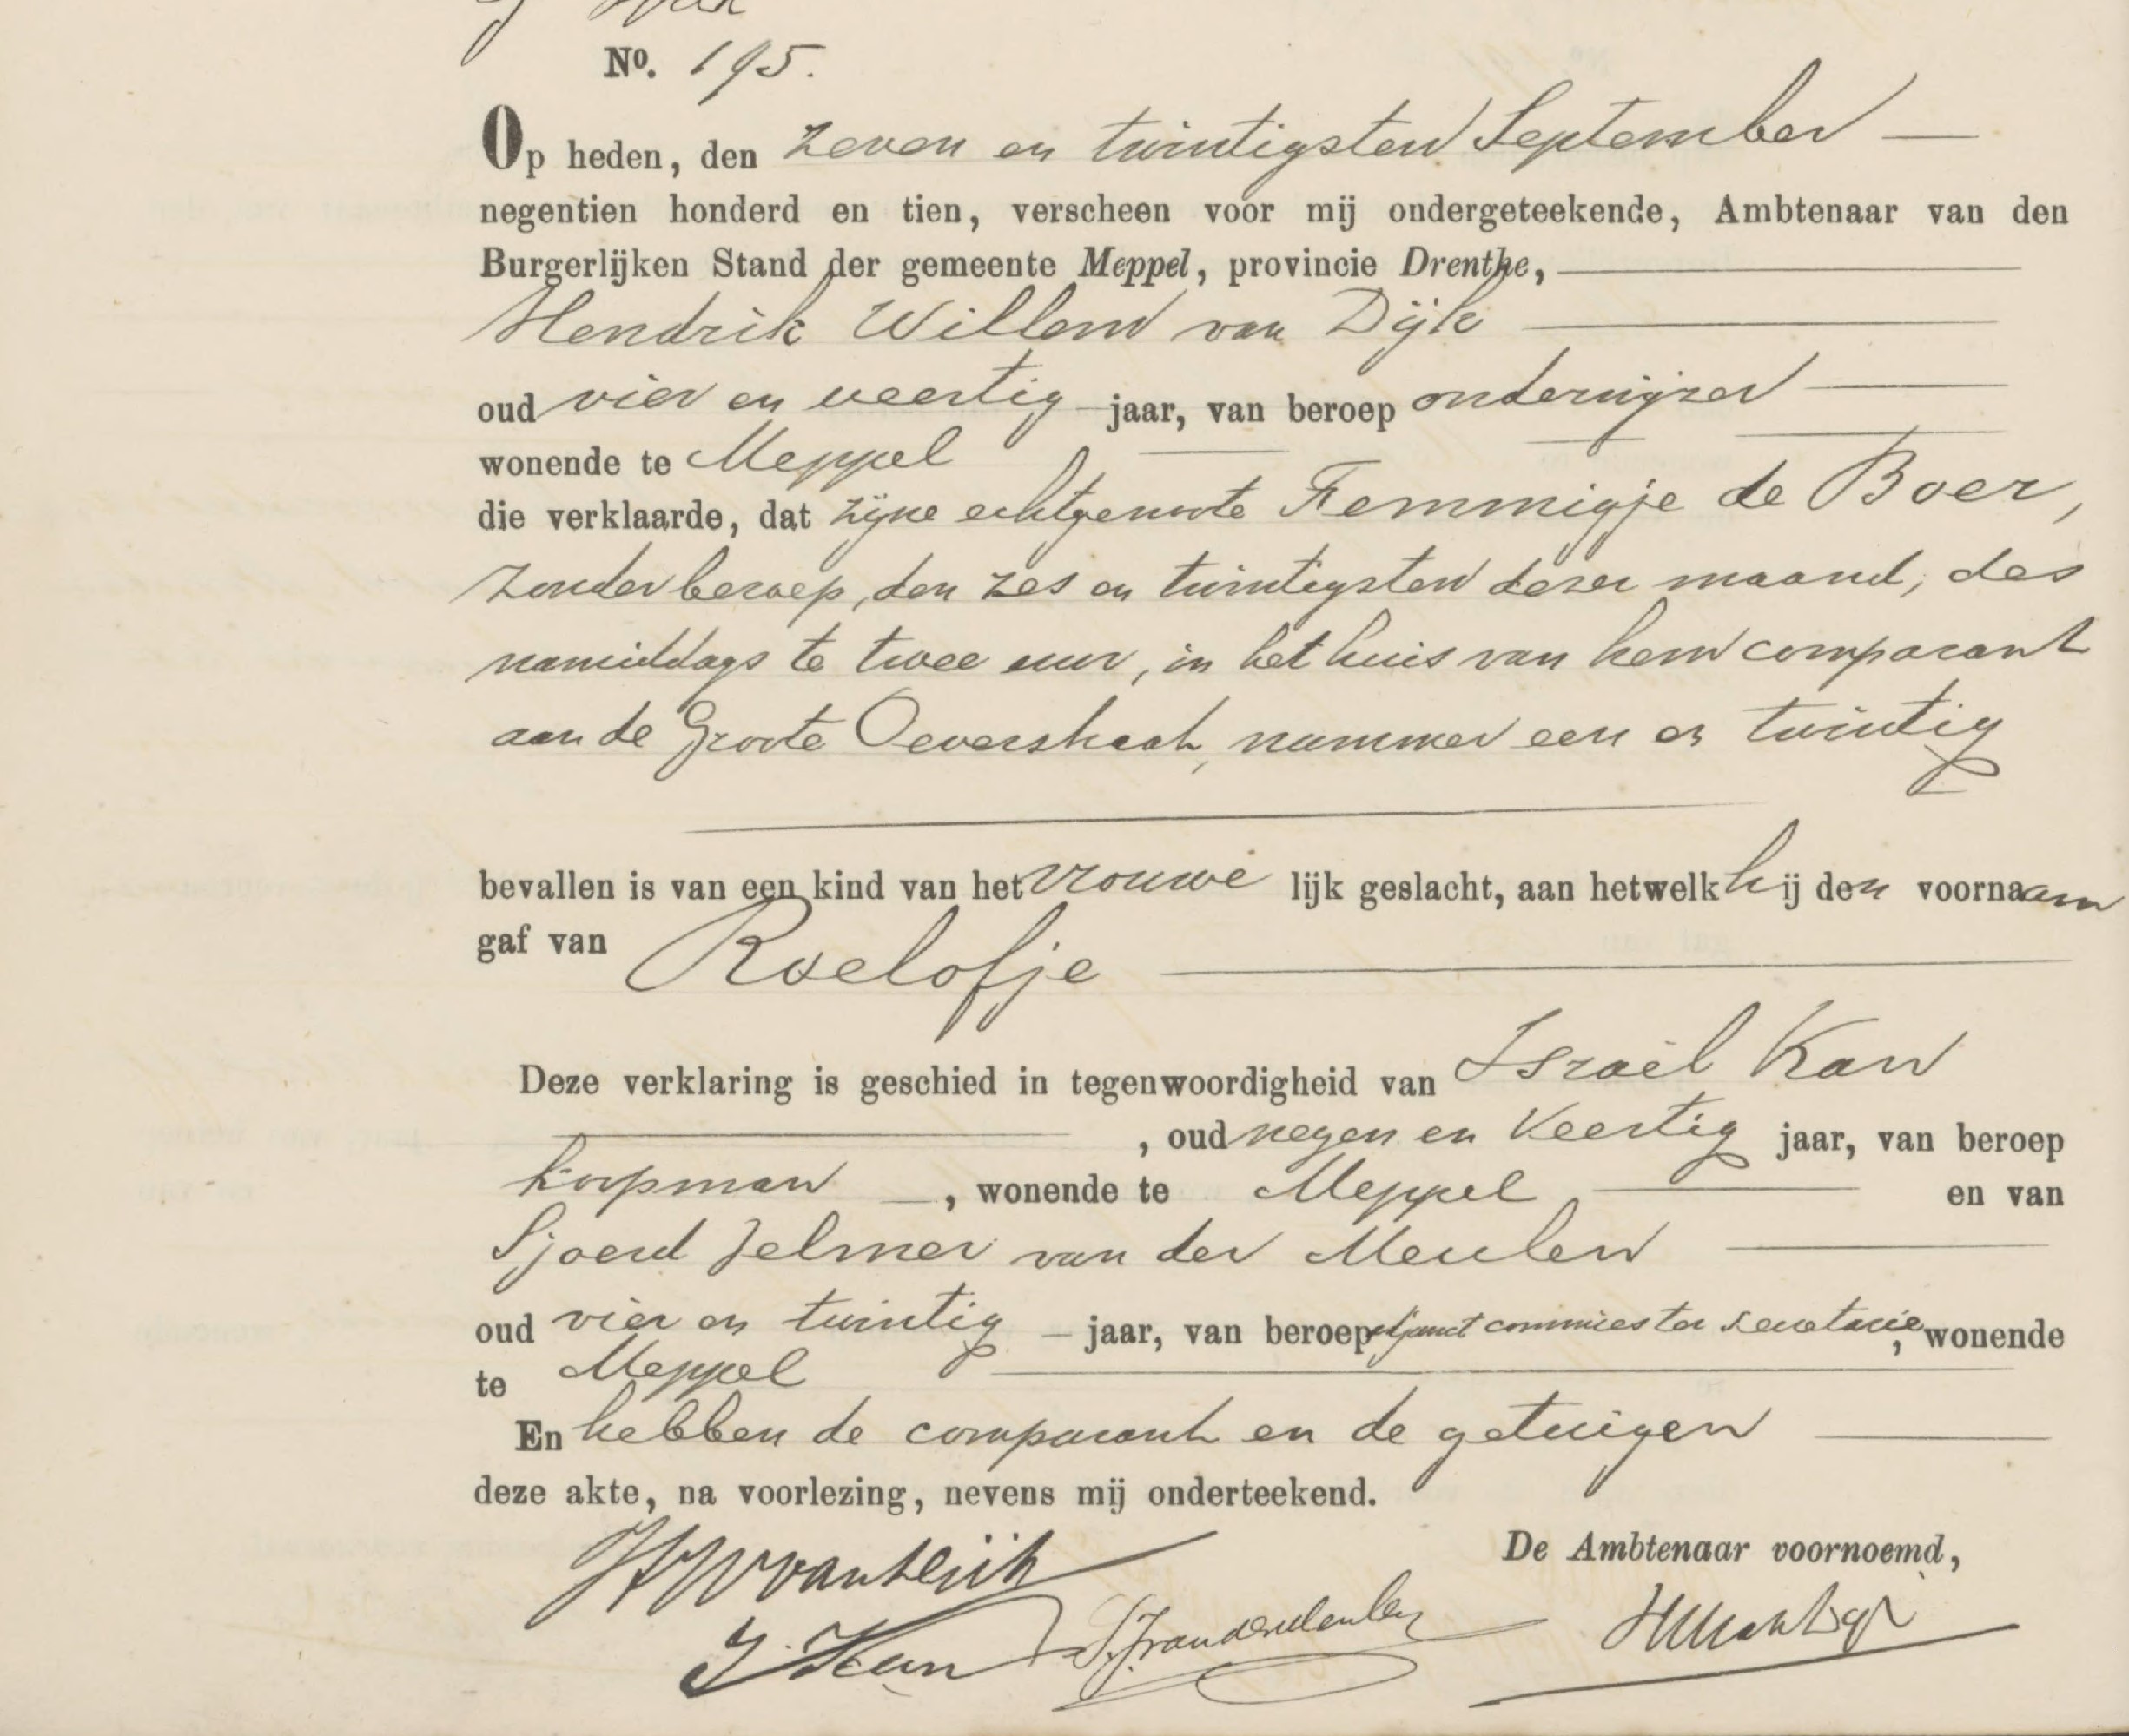 No. 195.
Op heden, den zeven en twintigsten September
negentien honderd en tien, verscheen voor mij ondergeteekende, Ambtenaar van den
Burgerlijken Stand der gemeente Meppel, provincie Drenthe,
Hendrik Willem van Dijk
oud vier en veertig jaar, van beroep onderwijzer
wonende te Meppel
die verklaarde, dat zijne echtgenoote Femmigje de Boer,
zonder beroep, den zes en twintigsten dezer maand, des
namiddags te twee uur, in het huis van hem comparant
aan de Groote Oeverstraat, nummer een en twintig
bevallen is van een kind van het vrouwelijk geslacht, aan hetwelk hij den voornaam
gaf van Roelofje
Deze verklaring is geschied in tegenwoordigheid van Israël Kan
, oud negen en veertig jaar, van beroep
koopman, wonende te Meppel en van
Sjoerd Jelmer van der Meulen
oud vier en twintig jaar, van beroep adjunct commies ter secretarie, wonende
te Meppel
En hebben de comparant en de getuigen
deze akte, na voorlezing, nevens mij onderteekend.
De Ambtenaar voornoemd,
HWvanDijk
I. Kan SJvanderMeulen